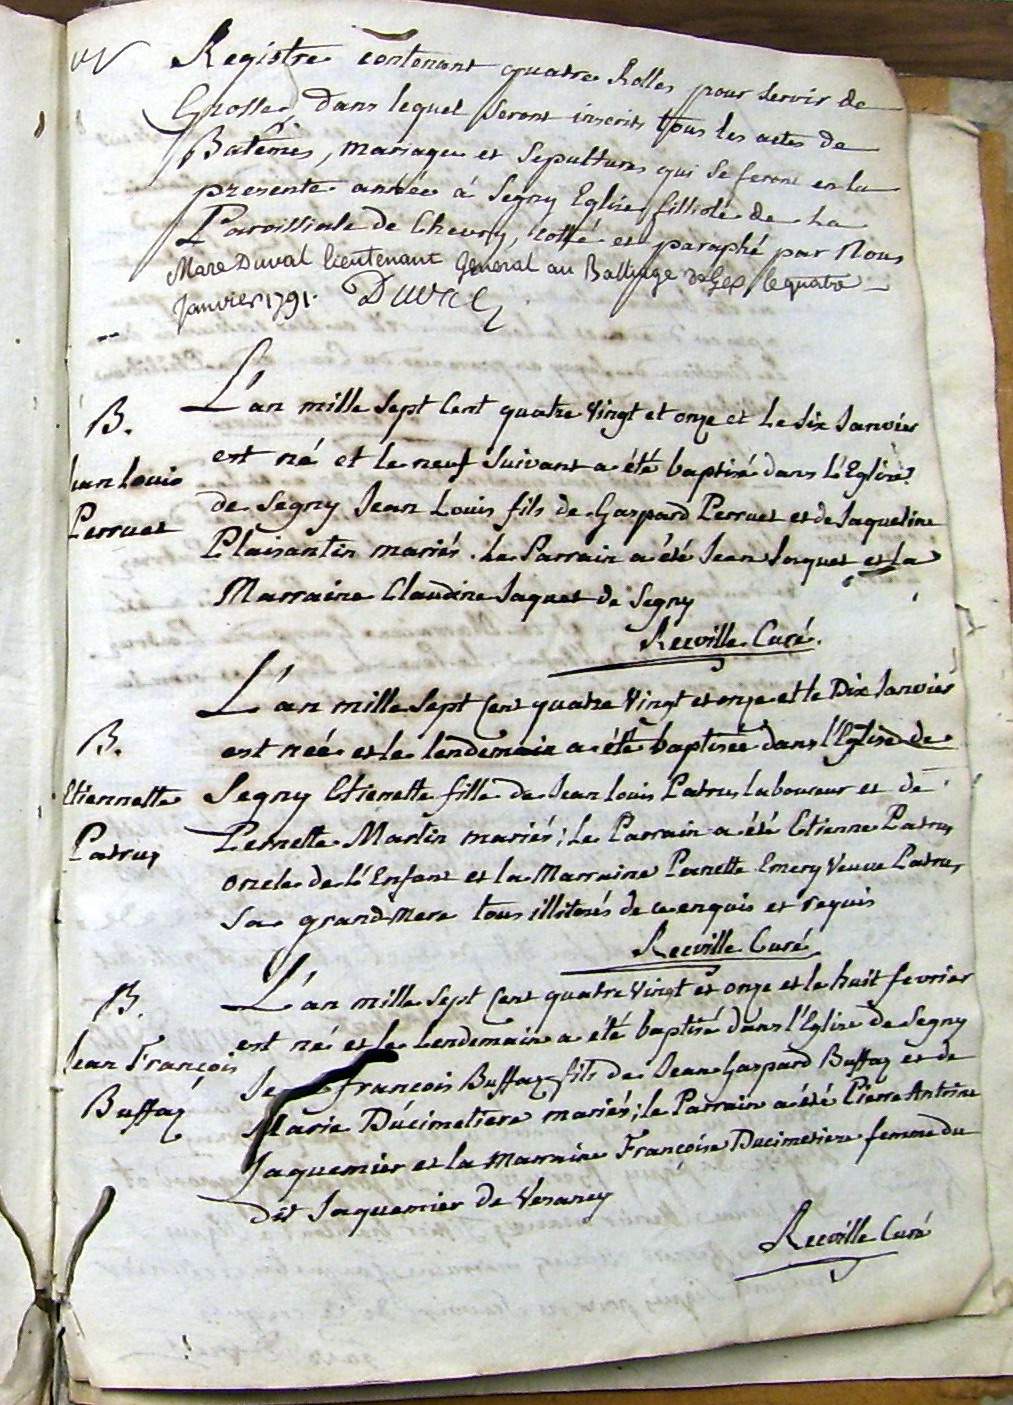 Registre contenant quatre Rolles pour servir de
Grosse, dans lequel seront inscrits tous les actes de
Batêmes, mariages et Sepultures qui se feront en la
presente année à Segny Eglise filliole de La
Paroissiale de Chevry, cotté et paraphé par Nous
Marc Duval lieutenant General au Balliage de Gex le quatre
Janvier 1791. Duval
B.
Jean Louis
Perruet
L'an mille sept Cent quatre Vingt et onze et Le six Janvier
est né et le neuf suivant a été baptisé dans l'Eglise
de Segny Jean Louis fils de Gaspard Perruet et de Jaqueline
Plaisantin mariés. Le Parrain a été Jean Jaquet et la
Marraine Claudine Jaquet de Segny
Recville Curé.
B.
Etiennette
Patrus
L'an mille sept Cent quatre Vingt et onze et le Dix Janvier
est née et le lendemain a été baptisée dans l'Eglise de
Segny Etienette fille de Jean Louis Patrus laboureur et de
Pernette Martin mariés; Le Parrain a été Etienne Patrus
oncle de l'Enfant et la Marraine Pernette Emery Veuve Patrus,
sa grand Mere tous illiterés de ce enquis et requis
Recville Curé
B.
Jean François
Buffaz
L'an mille sept Cent quatre Vingt et onze et le huit fevrier
est né et le Lendemain a été baptisé dans l'Eglise de Segny
Je François Buffaz fils de Jean Gaspard Buffaz et de
Marie Ducimetiere mariés; le Parrain a été Pierre Antoine
Jaquemier et la Marraine Françoise Ducimetiere femme du
dit Jaquemier de Vesancy
Recville Curé